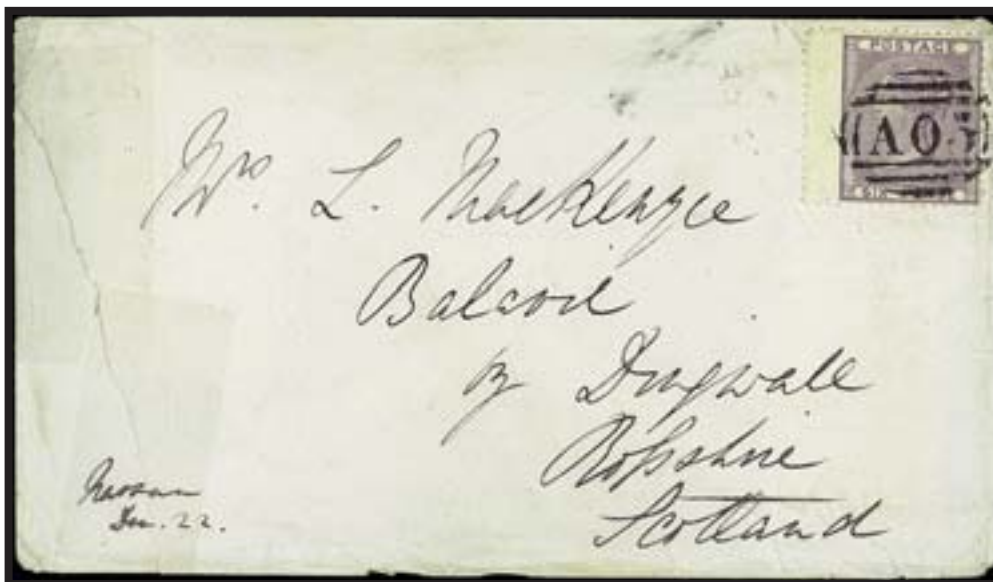 POSTAGE
A05
Mrs. L. MacKenzie
Balavil
by Dingwall
Rossshire
Scotland
Nassau
22.